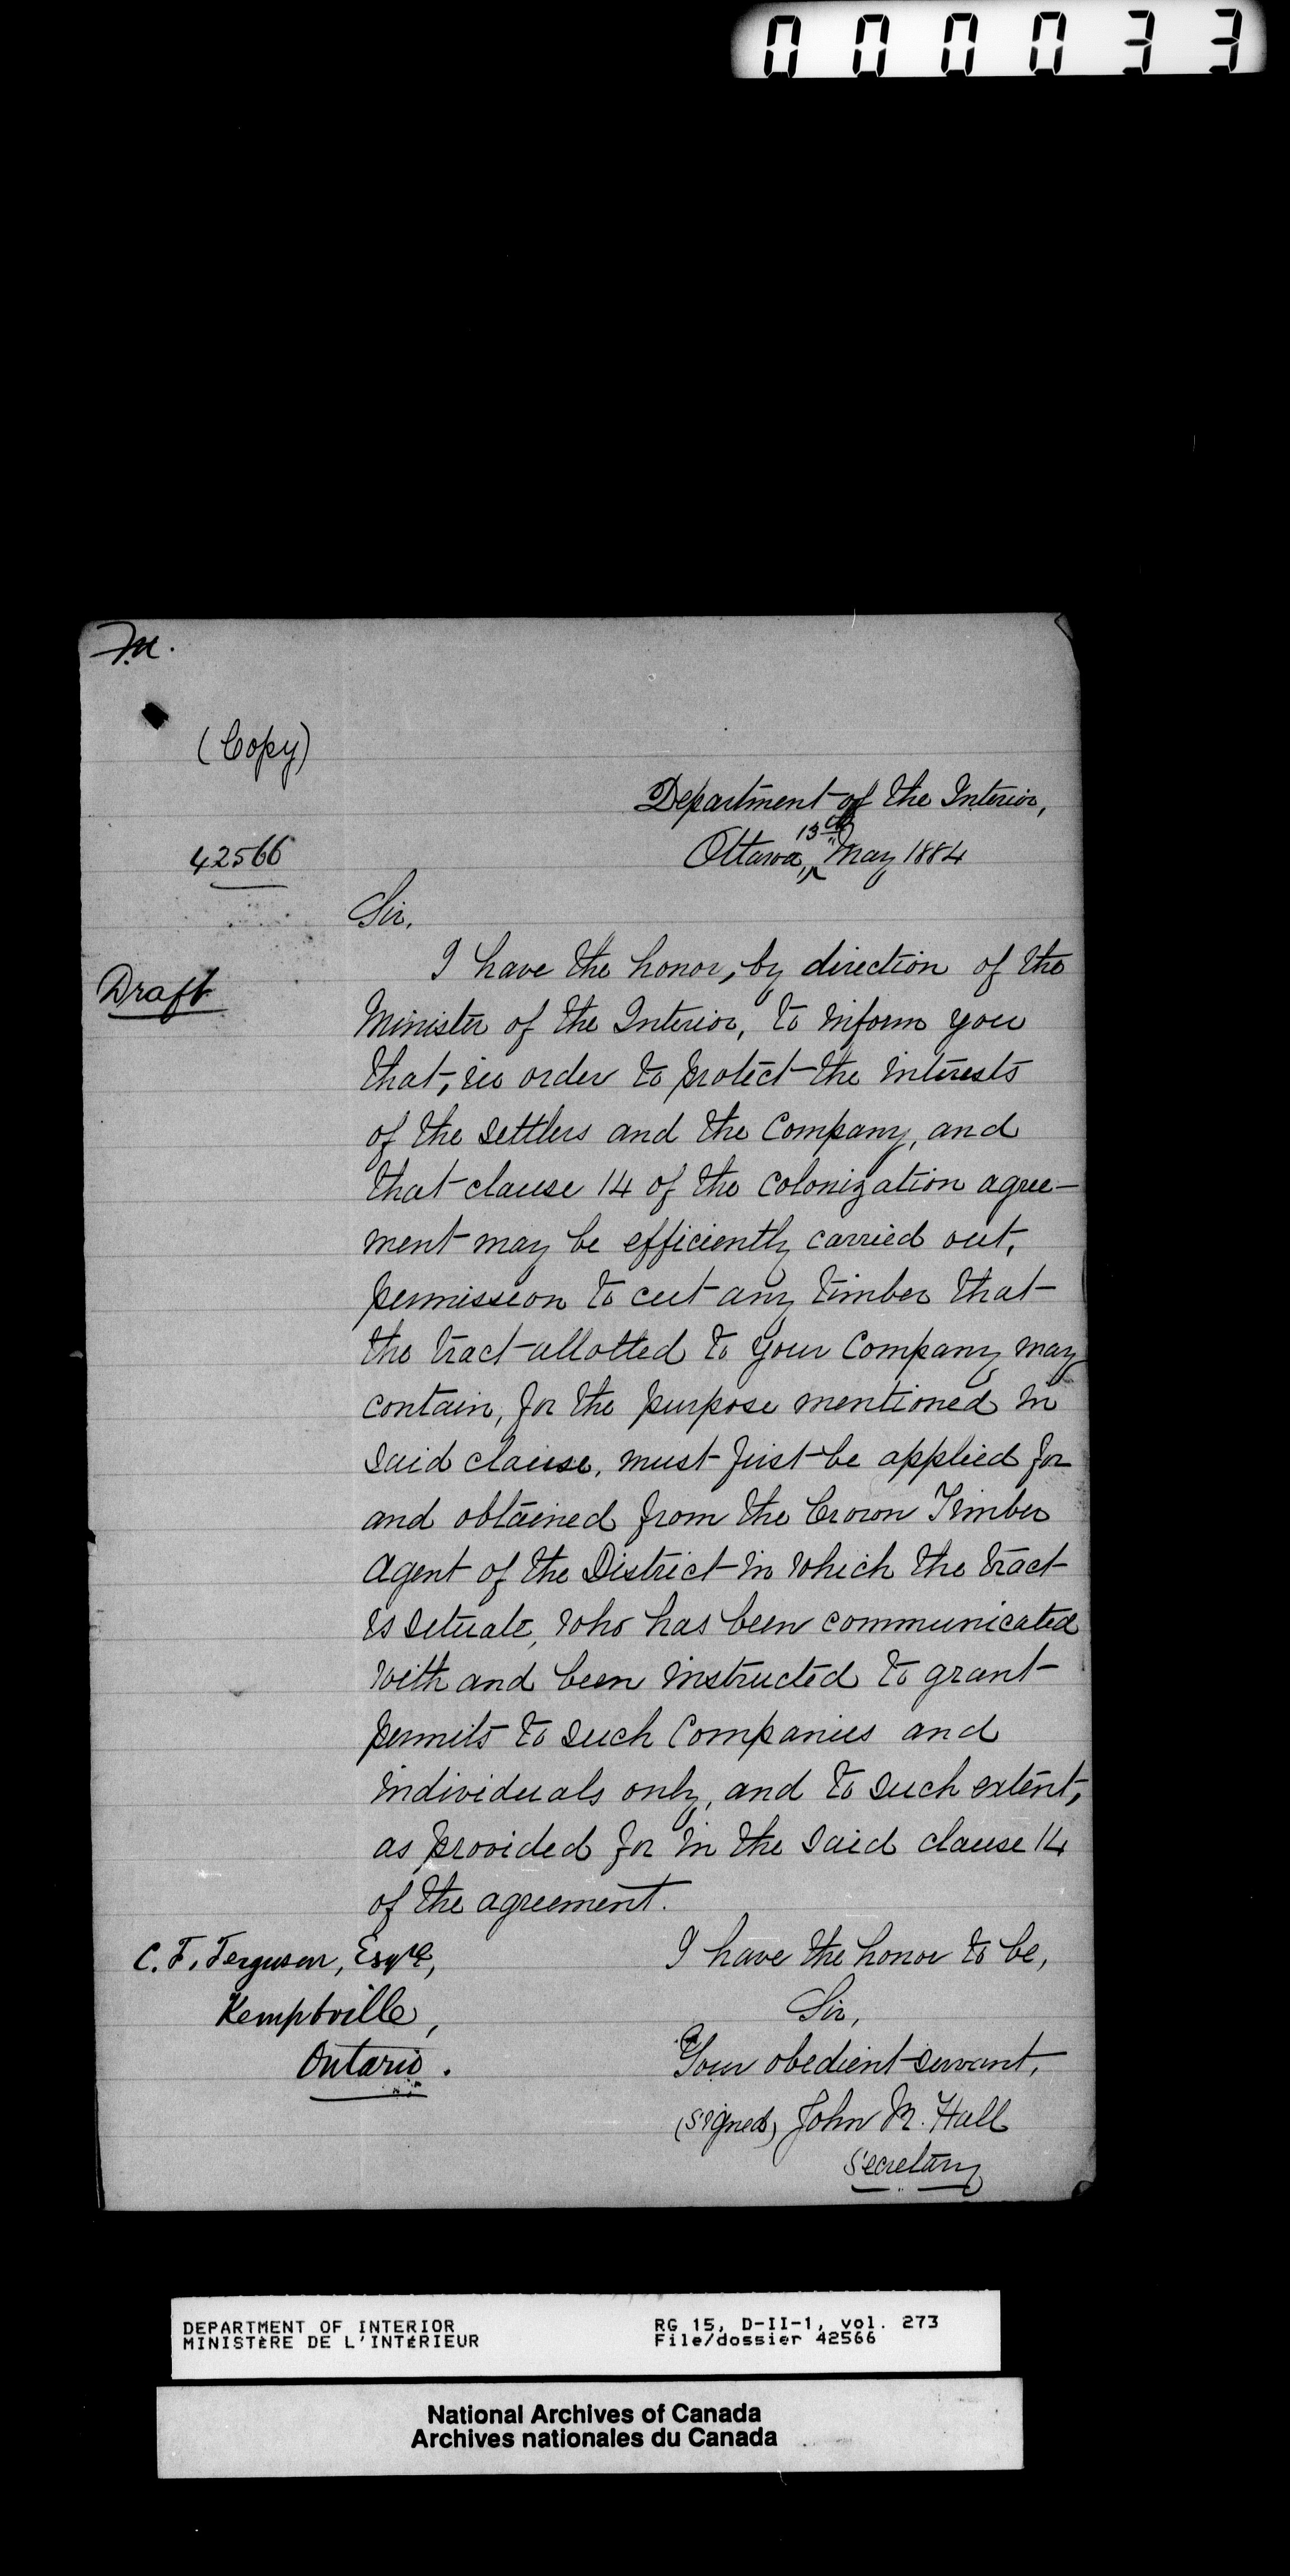 000033
F.M.
(Copy)
Department of the Interior,
13th
Ottawa, May 1884
42566
Sir,
I have the honor, by direction of the
Draft
Minister of the Interior, to inform you
that, in order to protect the interests
of the settlers and the Company, and
that clause 14 of the colonization agree-
ment may be efficiently carried out,
permission to cut any timber that
the tract allotted to your Company may
contain, for the purpose mentioned in
said clause, must first be applied for
and obtained from the Crown Timber
Agent of the District in which the tract
is situate, who has been communicated
with and been instructed to grant
permits to such Companies and
individuals only, and to such extent,
as provided for in the said clause 14
of the agreement.
I have the honor to be,
Sir,
Your obedient servant,
(signed) John M. Hall
Secretary
C. F. Ferguson, Esqre,
Kemptville,
Ontario.
DEPARTMENT OF INTERIOR
MINISTÈRE DE L'INTÉRIEUR
RG 15, D-II-1, vol. 273
File/dossier 42566
National Archives of Canada
Archives nationales du Canada